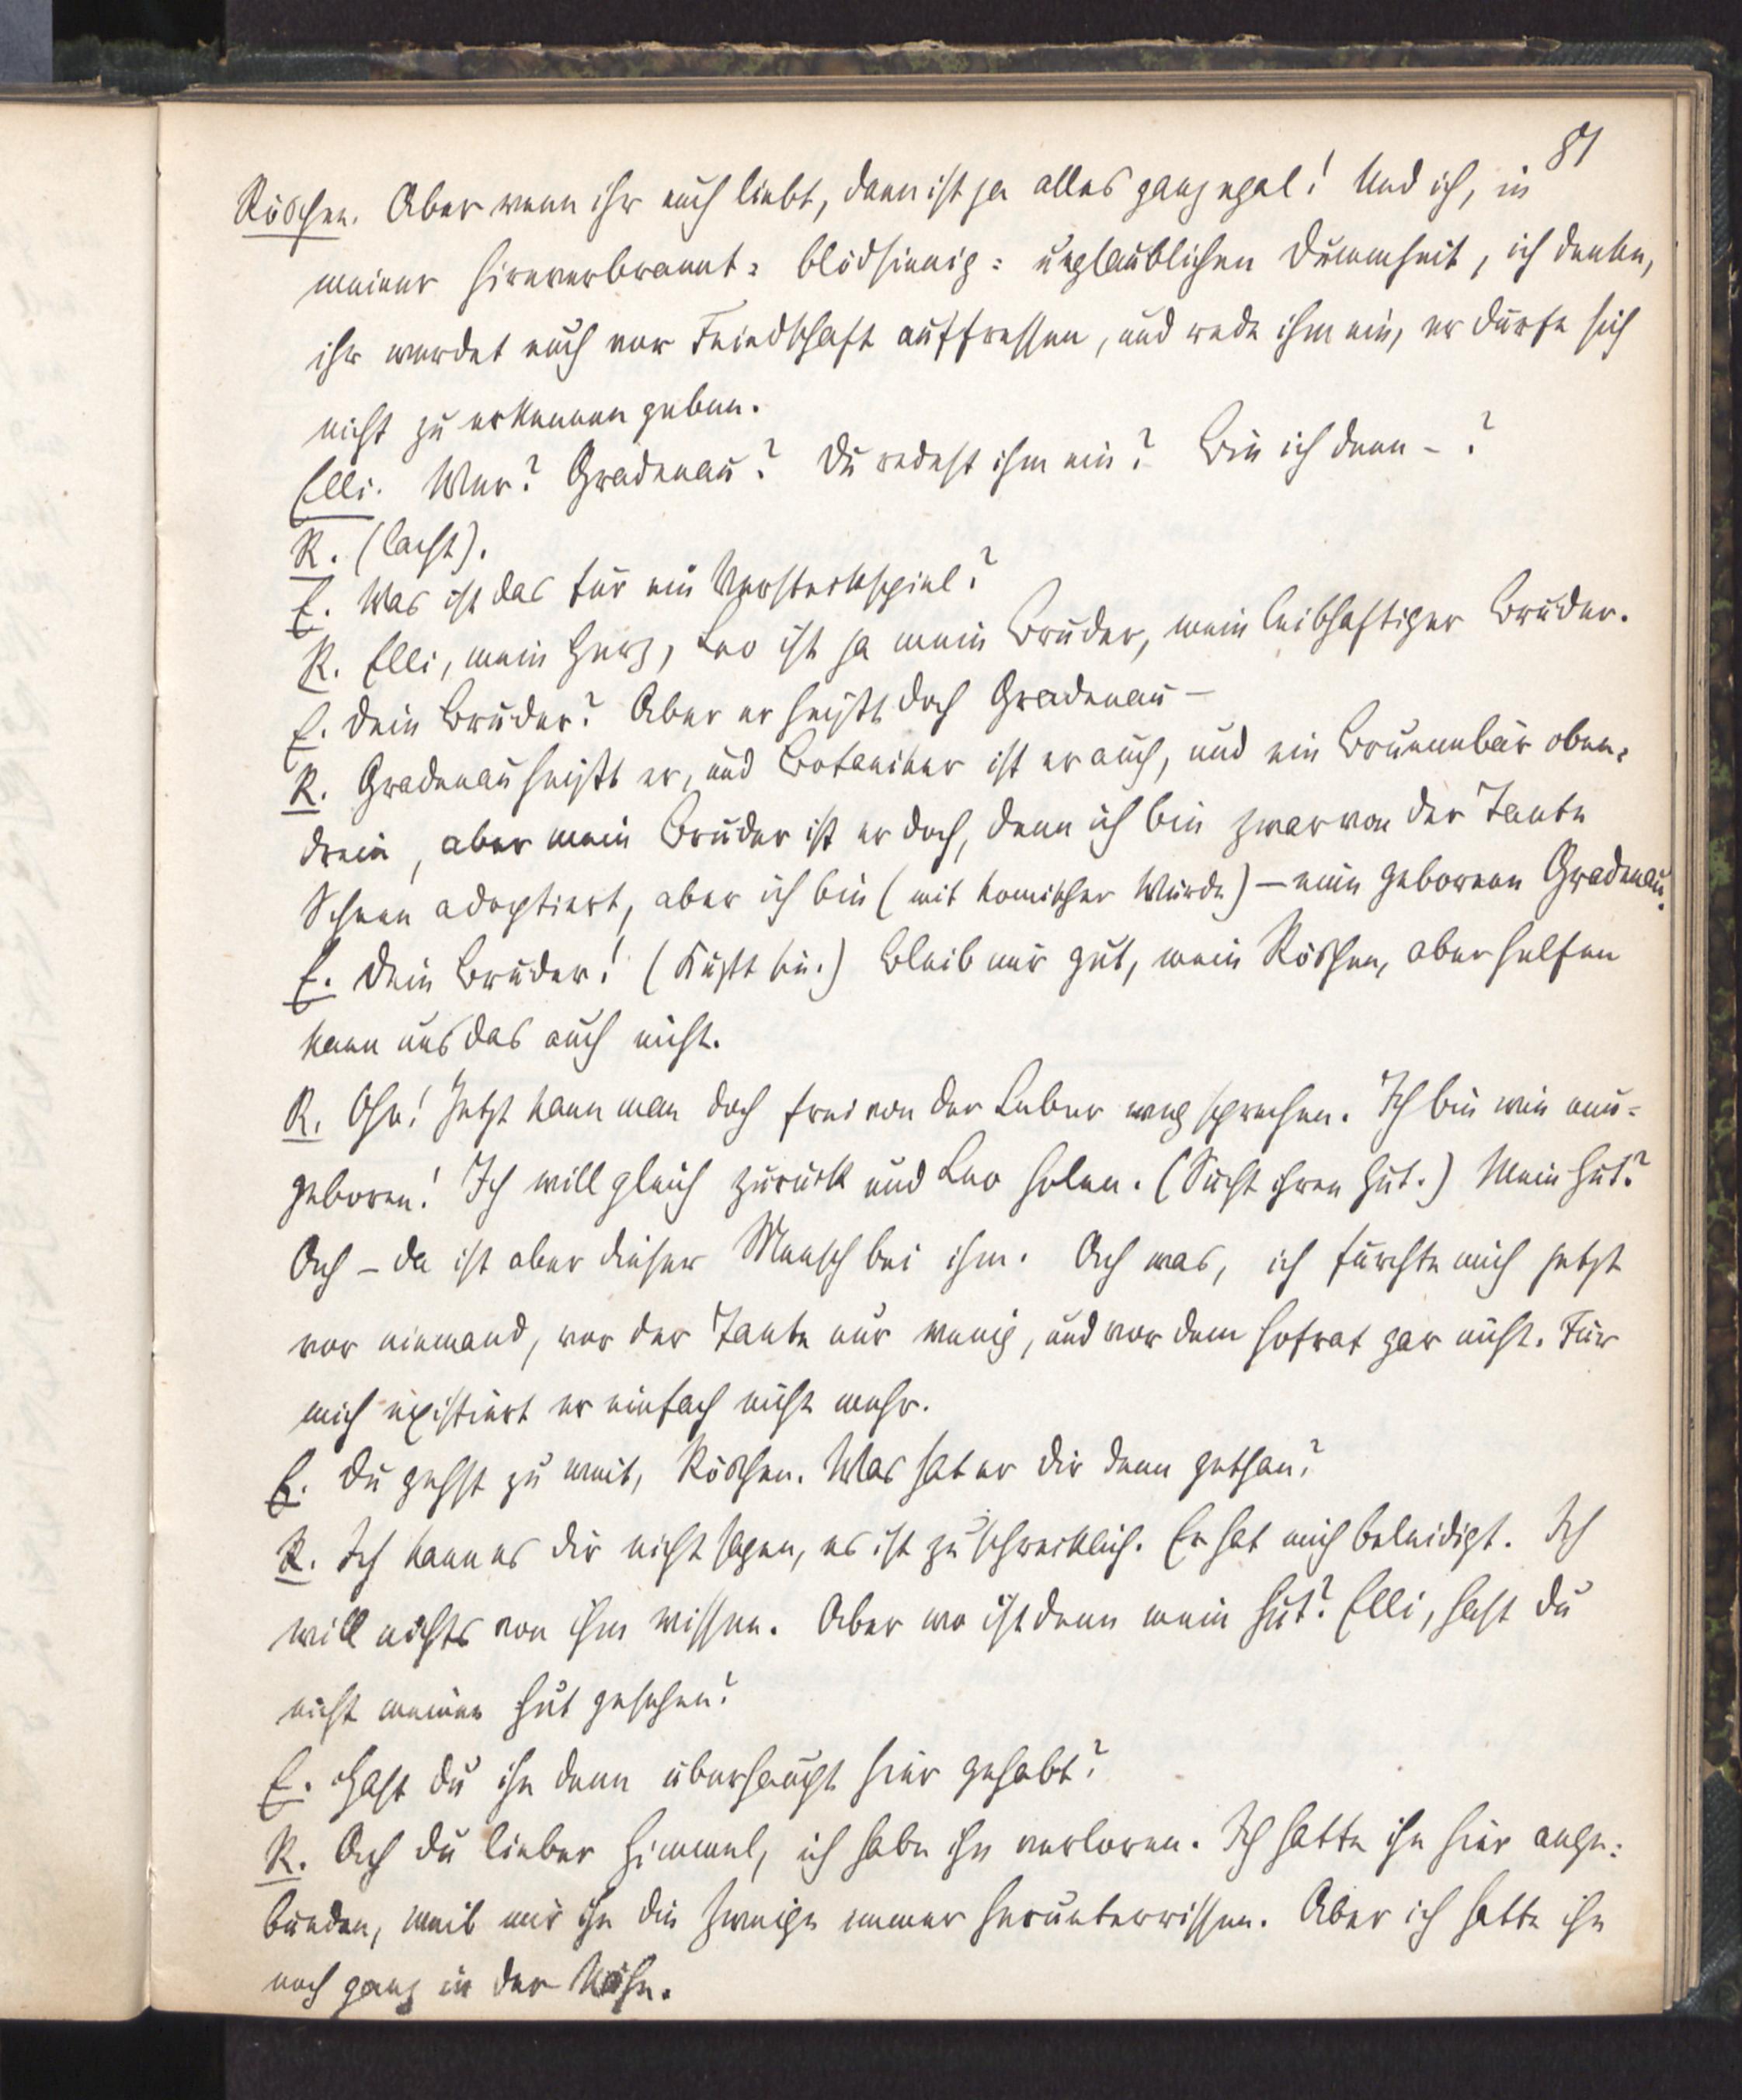 81
Röschen. Aber wenn ihr euch liebt, dann ist ja alles ganz egal! Und ich, in
meiner hirnverbrannt- blödsinnig- unglaublichen Dummheit, ich denke,
ihr werdet euch vor Feindschaft auffressen, und rede ihm ein, er dürfe sich
nicht zu erkennen geben.
Elli. Wer? Gradenau? Du redest ihm ein? Bin ich denn – ?
R. (lacht).
E. Was ist das für ein Versteckspiel?
R. Elli, mein Herz, Leo ist ja mein Bruder, mein leibhaftiger Bruder.
E. Dein Bruder? Aber er heißt doch Gradenau –
R. Gradenau heißt er, und Botaniker ist er auch, und ein Brummbär oben-
drein, aber mein Bruder ist er doch, denn ich bin zwar von der Tante
Scheen adoptiert, aber ich bin (mit komischer Würde) – eine geborene Gradenau.
E. Dein Bruder! (Küßt sie.) Bleib mir gut, mein Röschen, aber helfen
kann uns das auch nicht.
R. Oho! Jetzt kann man doch frei von der Leber weg sprechen. Ich bin wie neu-
geboren! Ich will gleich zurück und Leo holen. (Sucht ihren Hut.) Mein Hut?
Ach – da ist aber dieser Mensch bei ihm. Ach was, ich fürchte mich jetzt
vor niemand, vor der Tante nur wenig, und vor dem Hofrat gar nicht. Für
mich existiert er einfach nicht mehr.
E. Du gehst zu weit, Röschen. Was hat er dir denn gethan?
R. Ich kann es dir nicht sagen, es ist zu schrecklich. Er hat mich beleidigt. Ich
will nichts von ihm wissen. Aber wo ist denn mein Hut? Elli, hast du
nicht meinen Hut gesehen?
E. Hast du ihn denn überhaupt hier gehabt?
R. Ach du lieber Himmel, ich habe ihn verloren. Ich hatte ihn hier ange-
bunden, weil mir ihn die Zweige immer herunterrissen. Aber ich hatte ihn
noch ganz in der Nähe.